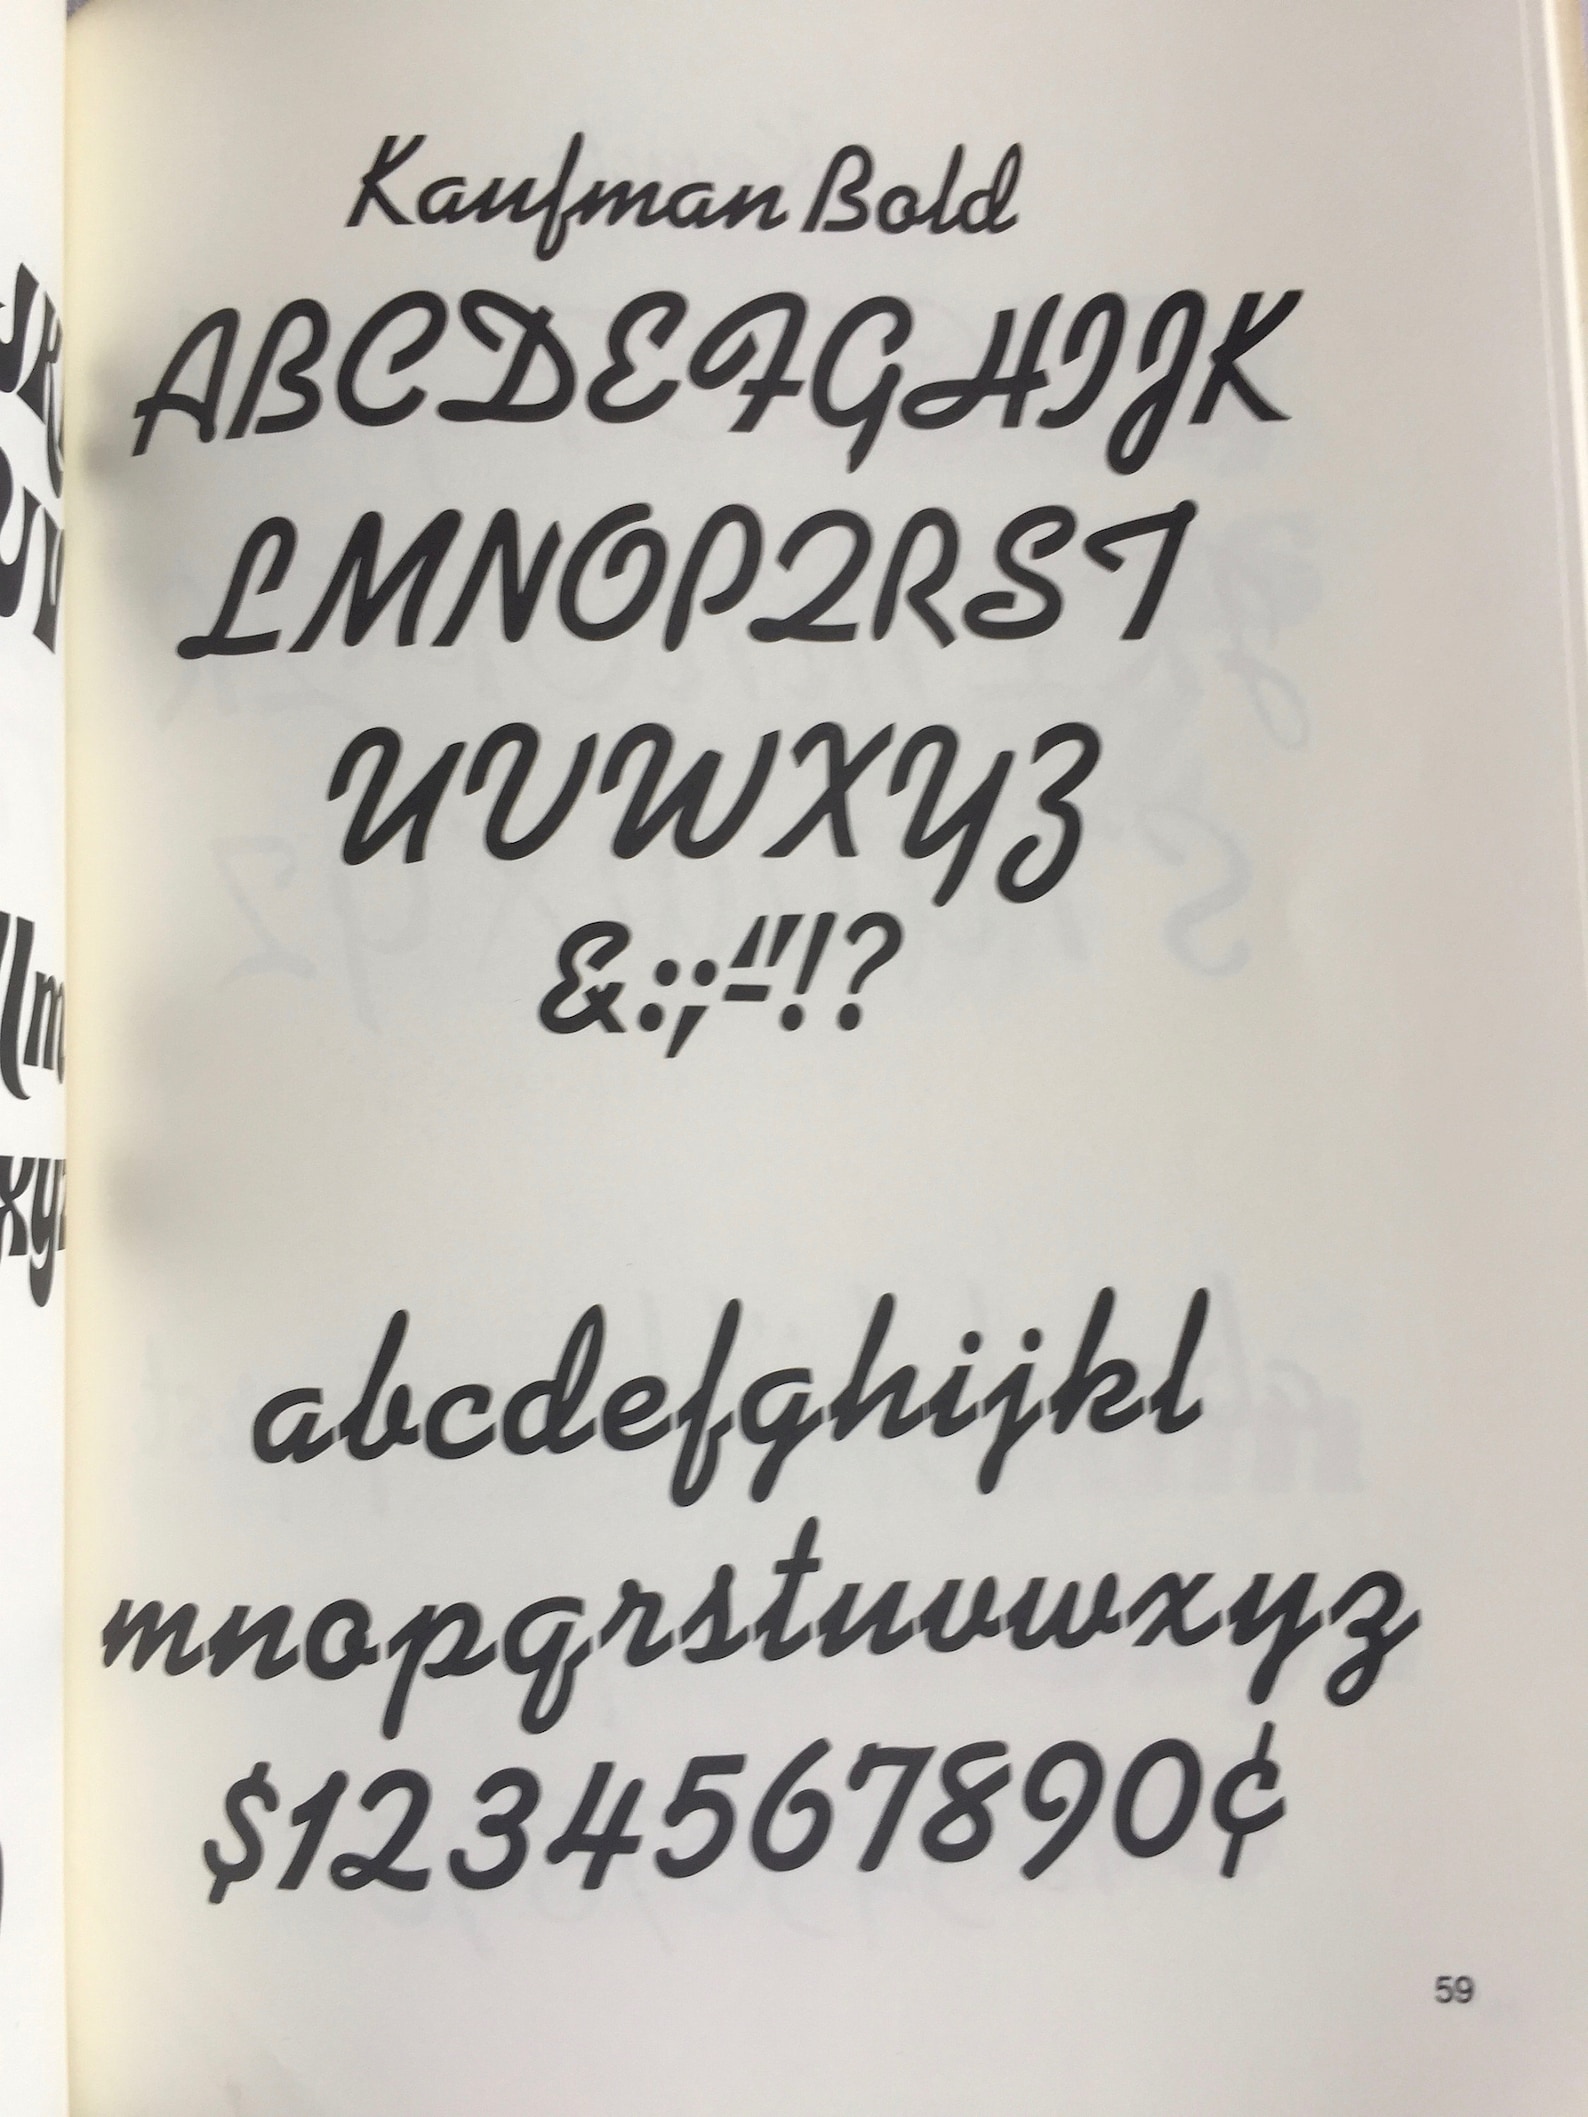 Kaufman Bold
ABCDEFGHIJK
LMNOPQRST
UVWXYZ
&:;-"!?
abcdefghijkl
mnopqrstuvwxyz
$1234567890¢
59